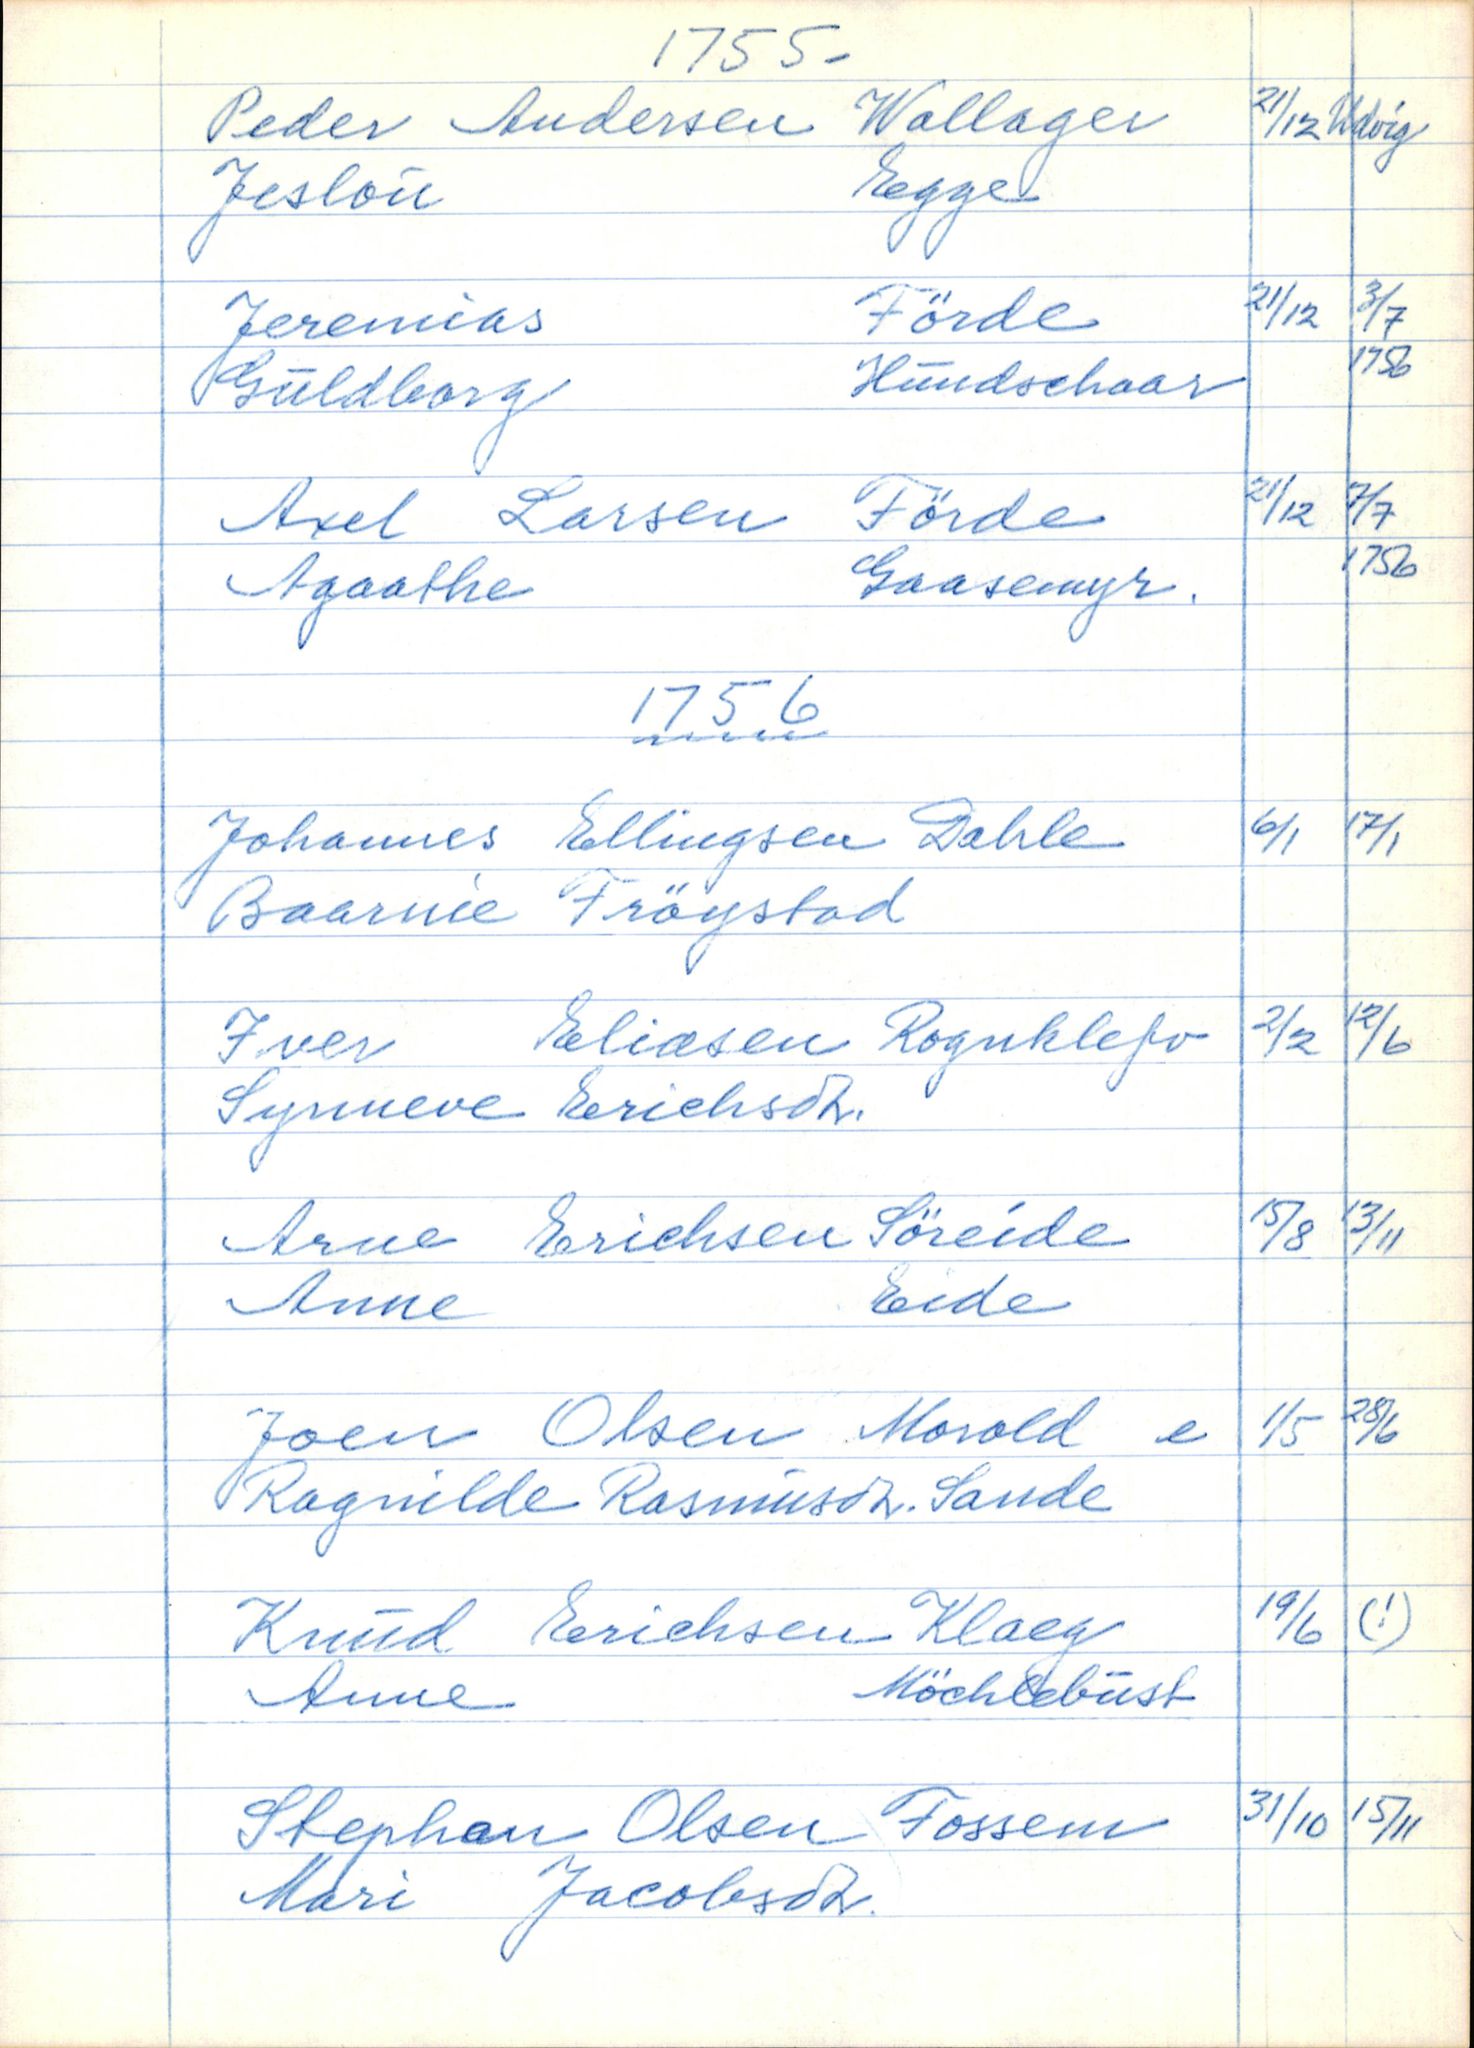 1755-
Peder Andersen Wallager 21/12 Udvig
Jeslou Egge
Jeremias Förde 21/12 3/7
Guldborg Hundschaar 1756
Axel Larsen Förde 21/12 7/7
Agaathe Gaasemyr. 1756
1756
Johannes Ellingsen Dahle 6/1 17/1
Baarnie Fröystad
Iver Eliæsen Rognklejv 2/2 12/6
Synneve Erichsdtr.
Arne Erichsen Söreide 15/8 13/11
Anne Eide
Joen Olsen Morold e 1/5 28/6
Ragnilde Rasmusdtr. Sande
Knud Erichsen Klaeg 19/6 (!)
Anne Möchlebust
Stephan Olsen Fossem 31/10 15/11
Mari Jacobsdtr.